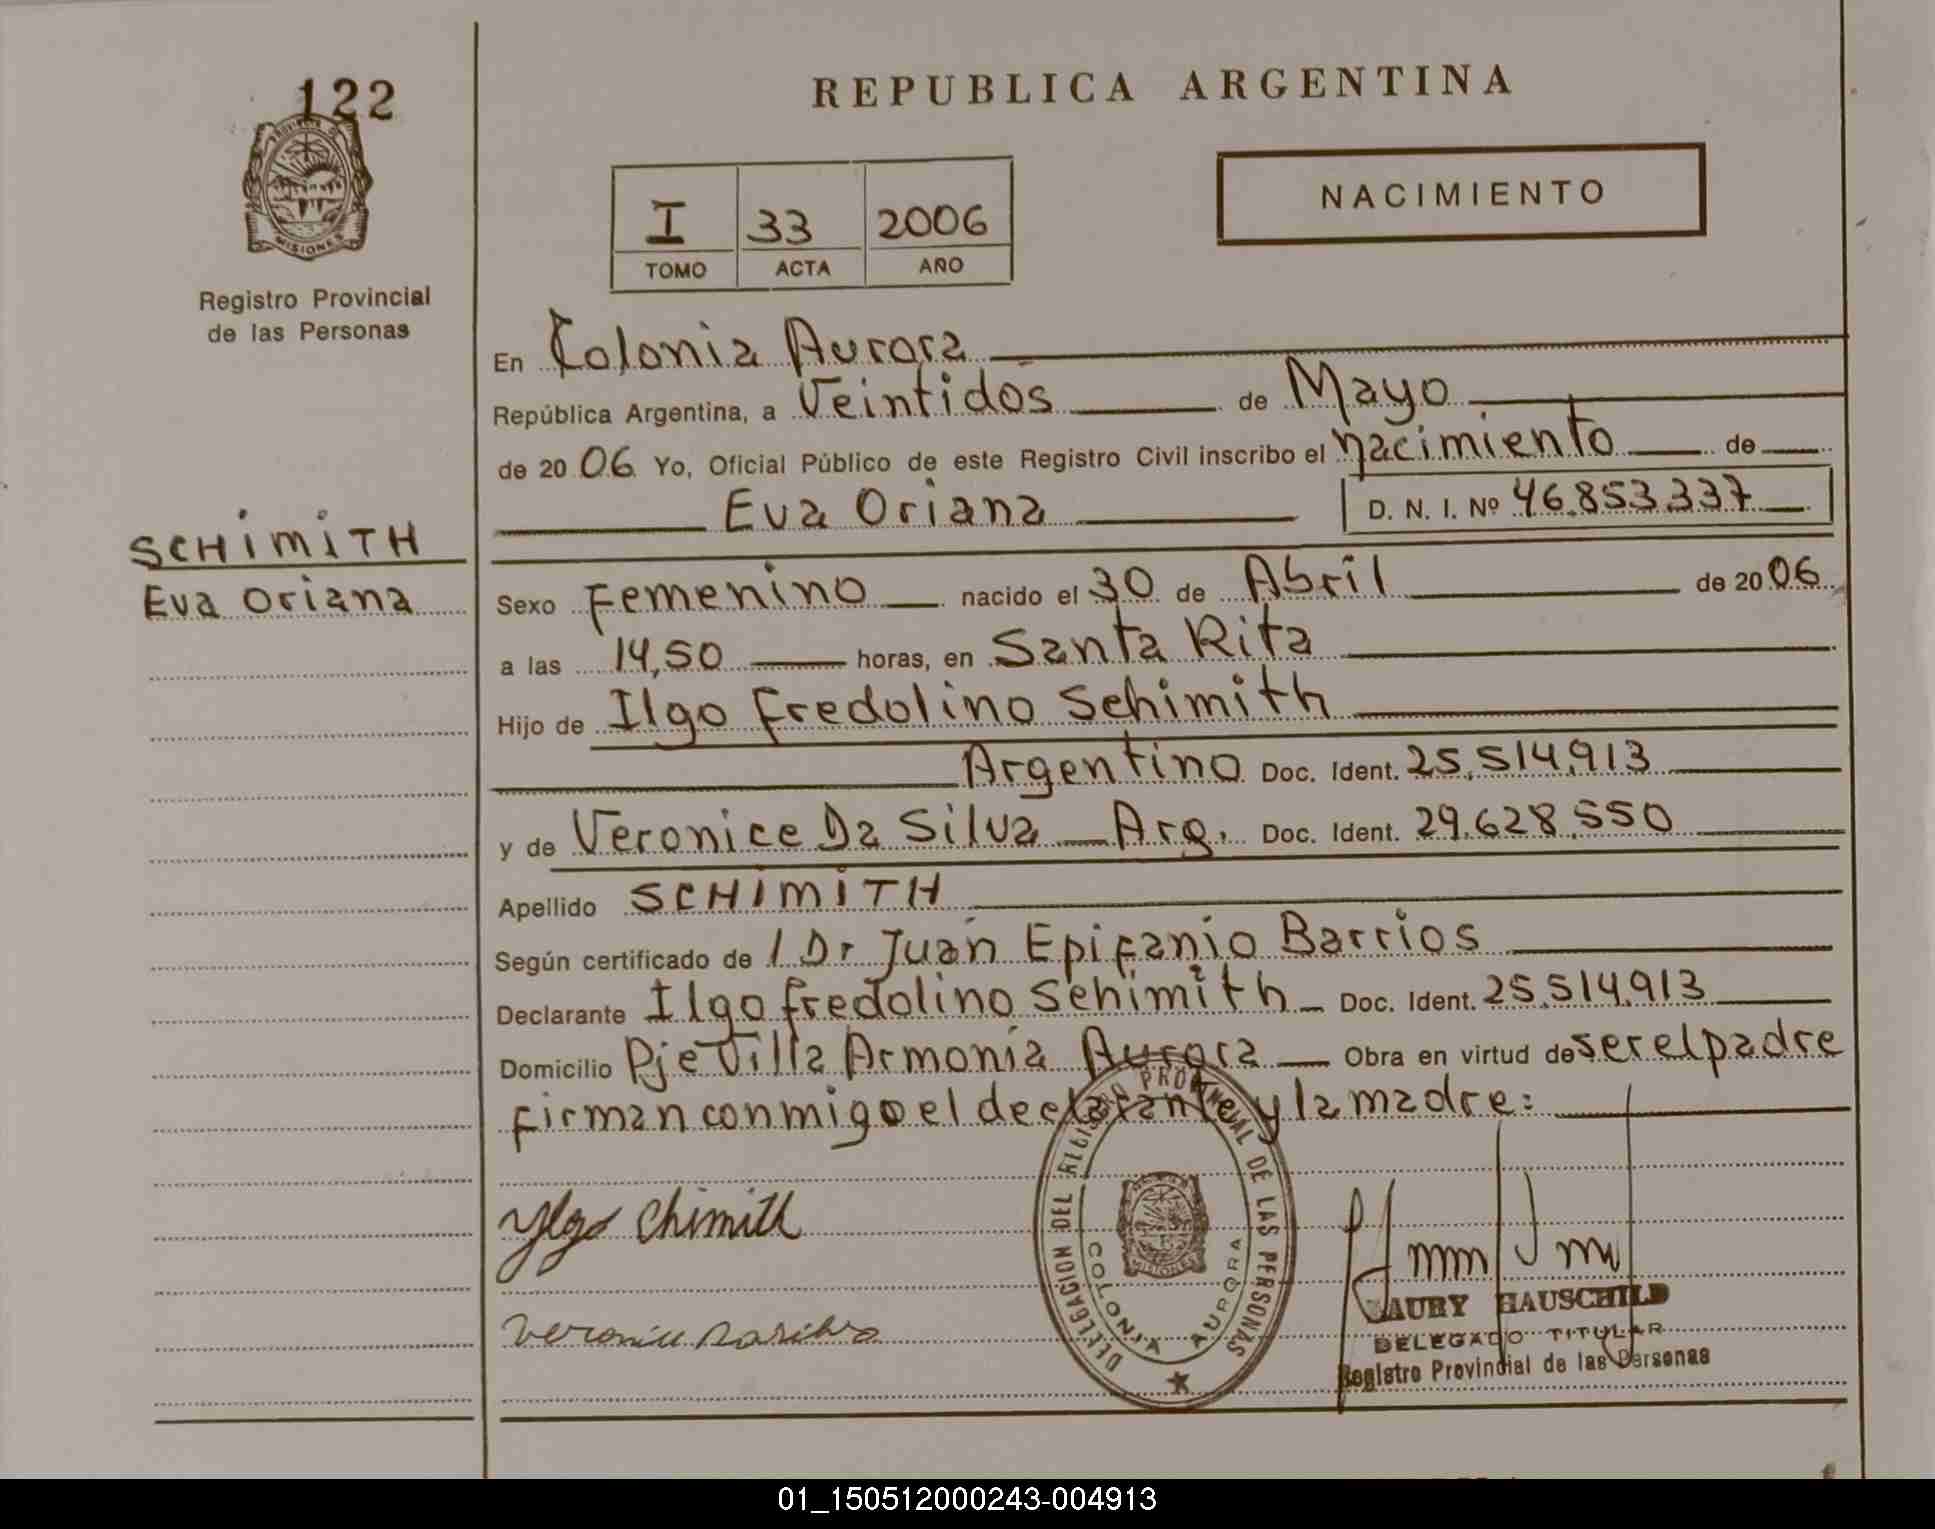 122
PROVINCIA DE
MISIONES
Registro Provincial
de las Personas
SCHIMITH
Eva Oriana
REPUBLICA ARGENTINA
NACIMIENTO
I 33 2006
TOMO ACTA AÑO
En Colonia Aurora
República Argentina, a Veintidós de Mayo
de 2006 Yo, Oficial Público de este Registro Civil inscribo el nacimiento de
Eva Oriana D. N. I. Nº 46.853.337
Sexo Femenino nacido el 30 de Abril de 2006
a las 14,50 horas, en Santa Rita
Hijo de Ilgo Fredolino Schimith
Argentino Doc. Ident. 25.514.913
y de Veronice Da Silva Arg. Doc. Ident. 29.628.550
Apellido SCHIMITH
Según certificado de / Dr Juan Epifanio Barrios
Declarante Ilgo Fredolino Schimith Doc. Ident. 25.514.913
Domicilio Pje Villa Armonía Aurora Obra en virtud de ser el padre
firman conmigo el declarante y la madre:
Ylgo Chimith
DELEGACION DEL REGISTRO PROVINCIAL DE LAS PERSONAS
MISIONES
COLONIA AURORA
HAUSCHILD
DELEGADO TITULAR
Registro Provincial de las Personas
01_150512000243-004913